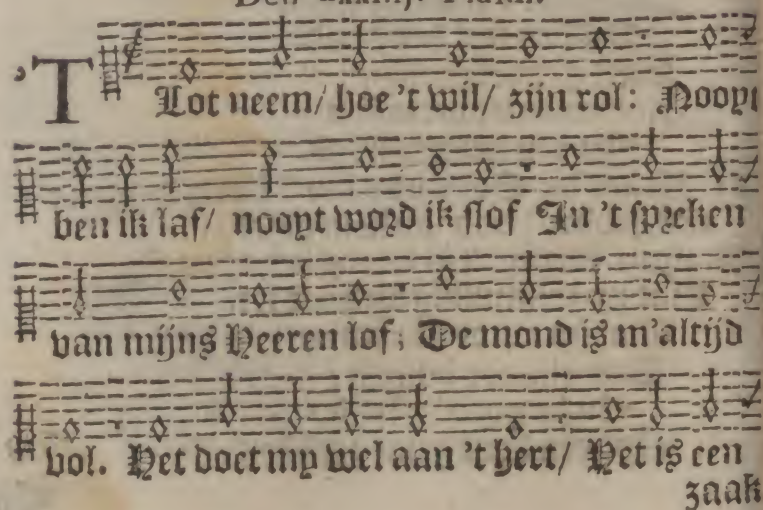 'T Lot neem/ hoe 't wil/ zijn rol: Nooyt
ben ik laf/ nooyt word ik slof In 't spreken
van mijns Heeren lof; De mond is m'altijd
vol. Het doet my wel aan 't hert/ Het is een
zaak